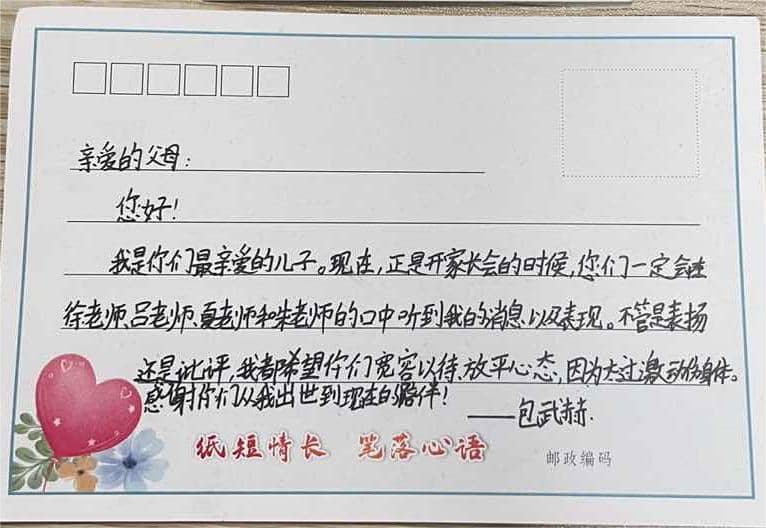 亲爱的父母:
您好!
我是你们最亲爱的儿子。现在,正是开家长会的时候,您们一定会在
徐老师、吕老师、夏老师和朱老师的口中听到我的消息以及表现。不管是表扬
还是批评,我都希望你们宽容以待、放平心态,因为太过激动伤身体。
感谢你们从我出世到现在的陪伴!
——包武赫.
纸短情长 笔落心语
邮政编码